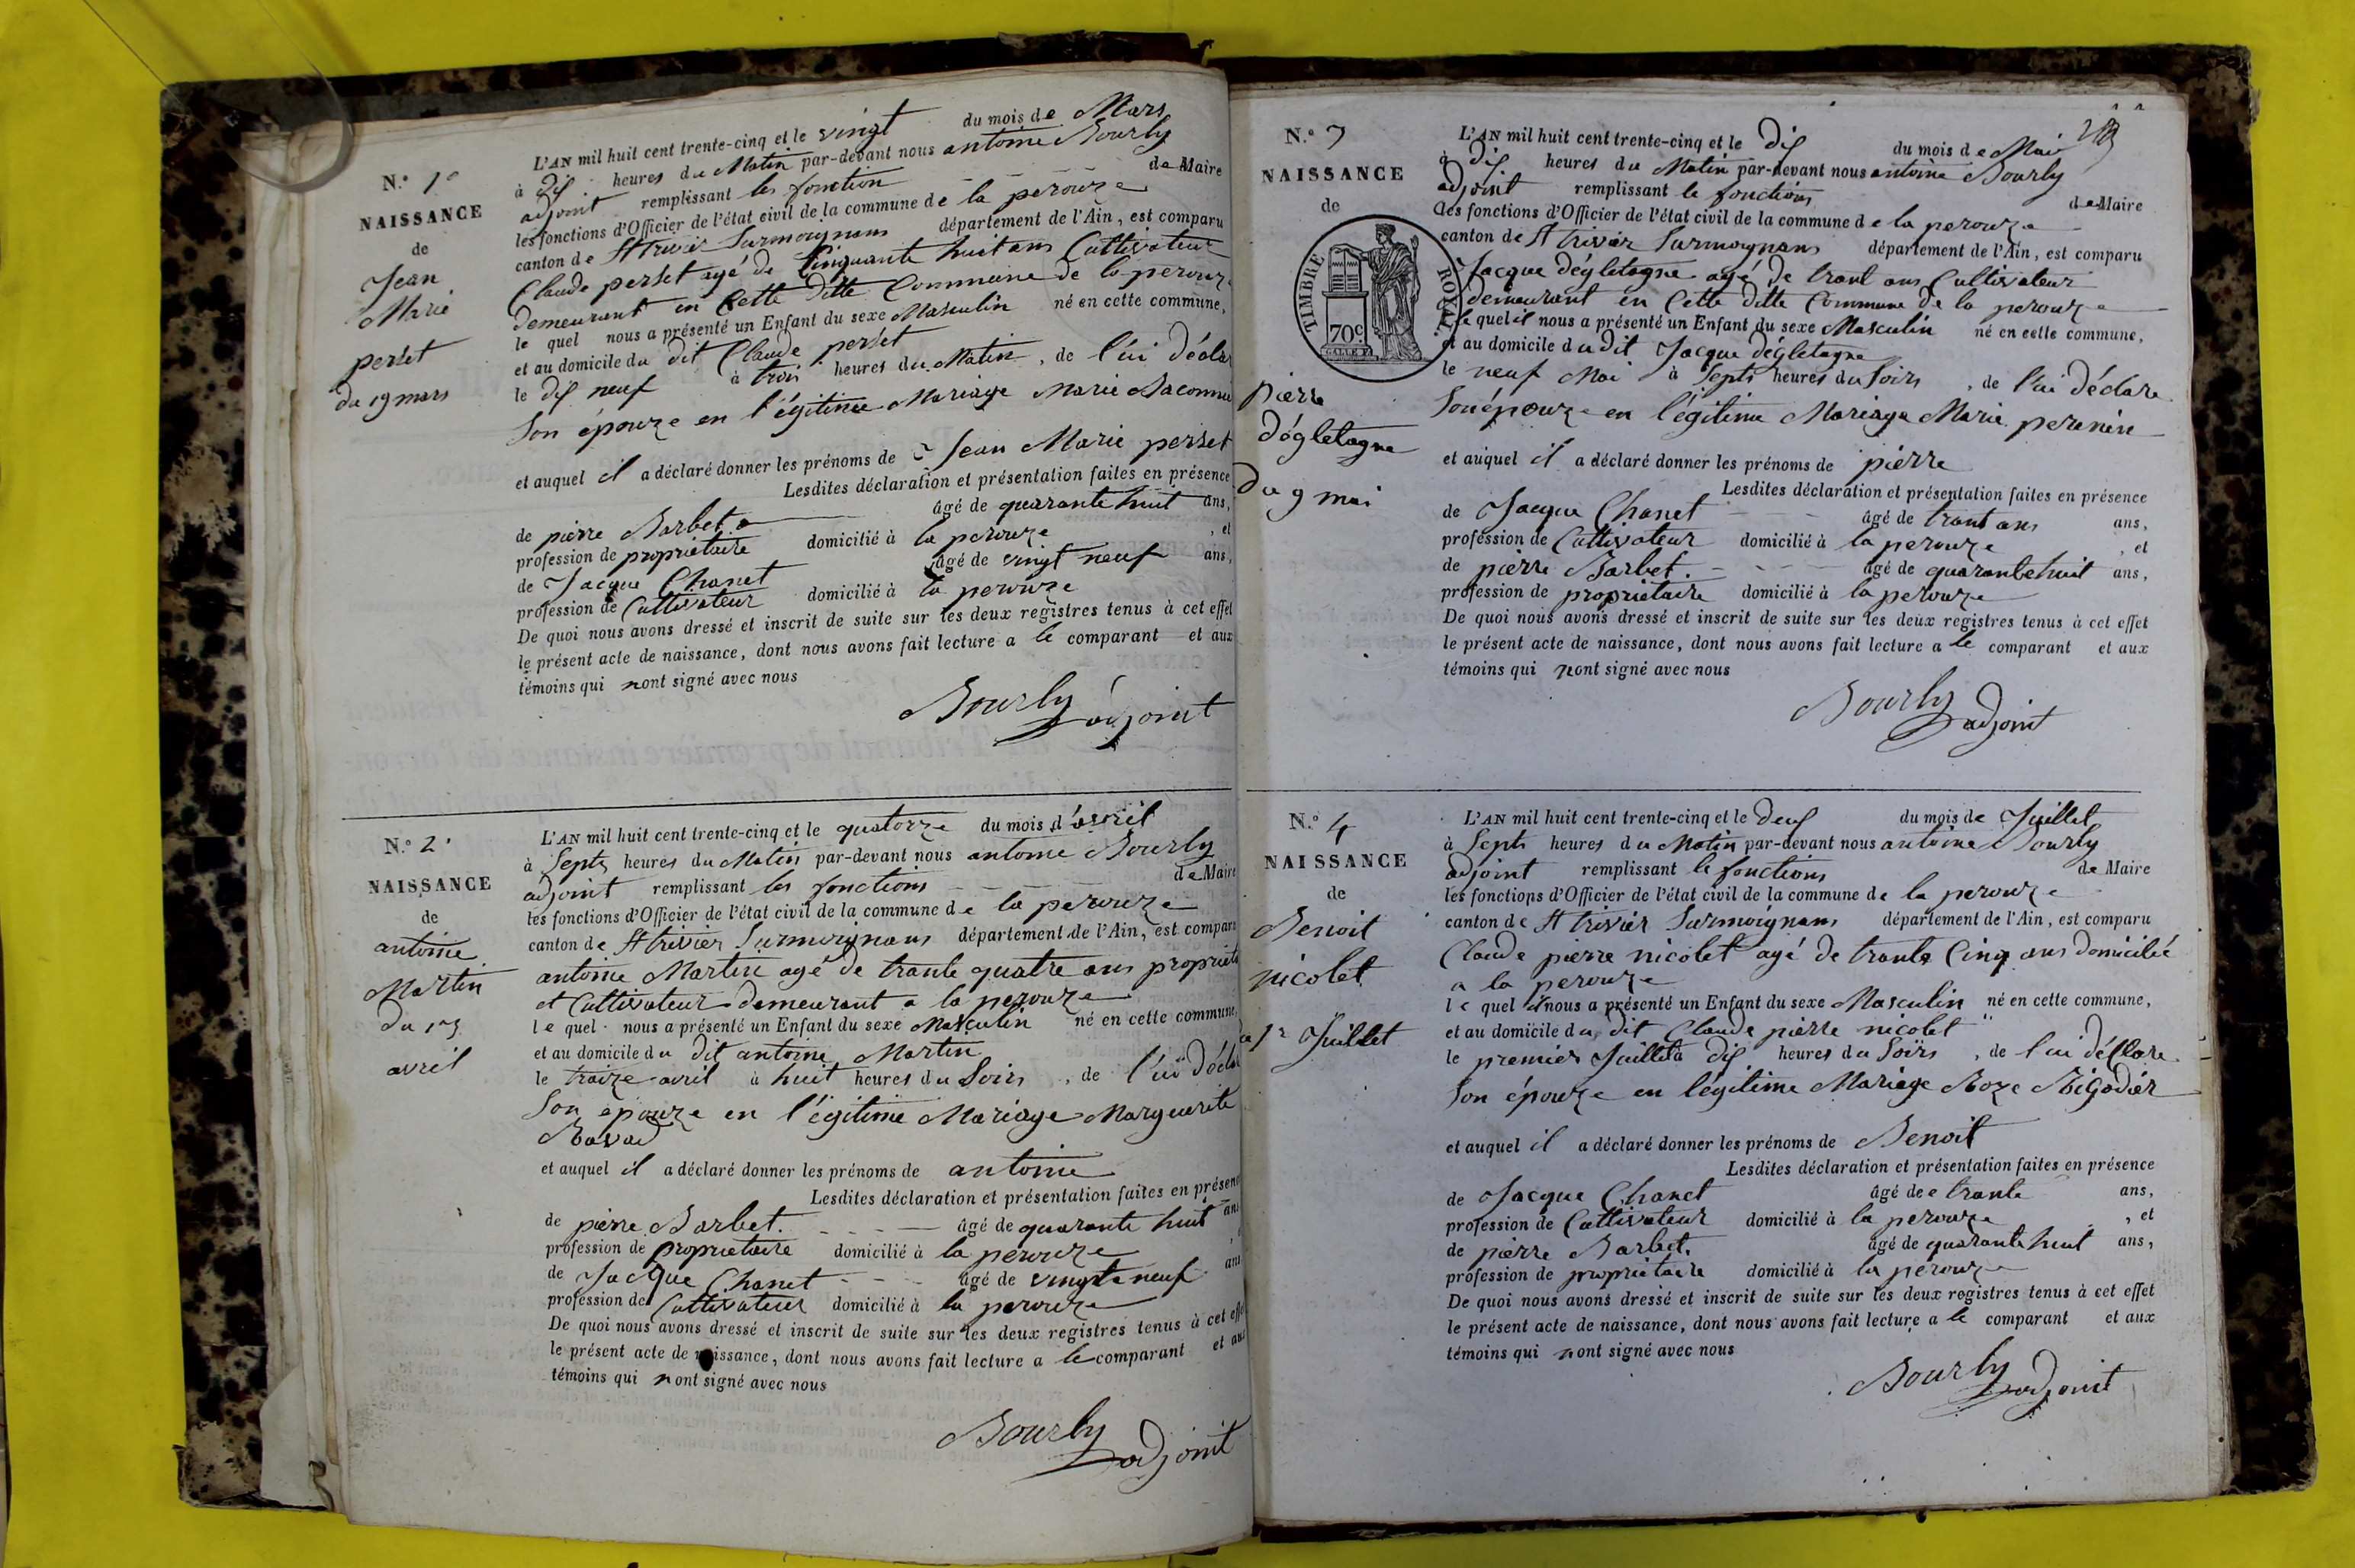 N.º 1º
NAISSANCE
de
Jean
Marie
perset
du 19 mars
L'AN mil huit cent trente-cinq et le vingt du mois de Mars
à dis heures du Matin par-devant nous antoine Bourly
adjoint remplissant les fonction de Maire
les fonctions d'Officier de l'état civil de la commune de la perouze
canton de St trivier Surmoignans département de l'Ain, est comparu
Claude perset agé de Cinquante huit ans Cultivateur
demeurant en Cette ditte Commune de la perouze
le quel nous a présenté un Enfant du sexe Masculin né en cette commune,
et au domicile du dit Claude perset
le dis neuf à trois heures du Matin, de l'ui décla
Son épouze en l'égitime Mariage Marie
et auquel il a déclaré donner les prénoms de Jean Marie perset
Lesdites déclaration et présentation faites en présence
de pierre Barbet âgé de quarante huit ans,
profession de propriétaire domicilié à la perouze, et
de Jacque Chanet âgé de vingt neuf ans,
profession de Cultivateur domicilié à la perouze
De quoi nous avons dressé et inscrit de suite sur les deux registres tenus à cet effet
le présent acte de naissance, dont nous avons fait lecture a le comparant et aux
témoins qui nont signé avec nous
Bourly adjoint
N.º 2.
NAISSANCE
de
antoine
Martin
du 13
avril
L'AN mil huit cent trente-cinq et le quatorze du mois d'avril
à Septs heures du Matin par-devant nous antoine Bourly
adjoint remplissant les fonctions de Maire
les fonctions d'Officier de l'état civil de la commune de la perouze
canton de St trivier Surmoignans département de l'Ain, est comparu
antoine Martin agé de trante quatre ans propriét
et Cultivateur demeurant a la perouze
le quel nous a présenté un Enfant du sexe Masculin né en cette commune,
et au domicile du dit antoine Martin
le traize avril à huit heures du Soirs, de l'ui décla
Son épouze en l'égitime Mariage Marguerite
Ravad
et auquel il a déclaré donner les prénoms de antoine
Lesdites déclaration et présentation faites en présen
de pierre Barbet. âgé de quarante huit ans
profession de propriétaire domicilié à la perouze
de Jacque Chanet âgé de vingts neuf ans
profession de Cultivateur domicilié à la perouze
De quoi nous avons dressé et inscrit de suite sur les deux registres tenus à cet effet
le présent acte de naissance, dont nous avons fait lecture a le comparant et aux
témoins qui nont signé avec nous
Bourly adjoint
N.º 3
NAISSANCE
de
TIMBRE ROYAL
70c
pierre
dégletagne
du 9 mai
L'AN mil huit cent trente-cinq et le dis du mois de Mai
à dis heures du Matin par-devant nous antoine Bourly
adjoint remplissant le fonctions de Maire
les fonctions d'Officier de l'état civil de la commune de la perouze
canton de St trivier Surmoignans département de l'Ain, est comparu
Jacque dégletagne agé de trant ans Cultivateur
demeurant en Cette ditte Commune de la perouze
le quel il nous a présenté un Enfant du sexe Masculin né en cette commune,
et au domicile du dit Jacque dégletagne
le neuf Mai à Septs heures du Soirs, de l'ui déclare
Son épouze en l'égitime Mariage Marie perenin
et auquel il a déclaré donner les prénoms de pierre
Lesdites déclaration et présentation faites en présence
de Jacque Chanet âgé de trant ans ans,
profession de Cultivateur domicilié à la perouze, et
de pierre Barbet. âgé de quarante huit ans,
profession de propriétaire domicilié à la perouze
De quoi nous avons dressé et inscrit de suite sur les deux registres tenus à cet effet
le présent acte de naissance, dont nous avons fait lecture a le comparant et aux
témoins qui nont signé avec nous
Bourly adjoint
N.º 4
NAISSANCE
de
Benoit
nicolet
du 1r Juillet
L'AN mil huit cent trente-cinq et le deus du mois de Juillet
à Septs heures du Matin par-devant nous antoine Bourly
adjoint remplissant le fonctions de Maire
les fonctions d'Officier de l'état civil de la commune de la perouze
canton de St trivier Surmoignans département de l'Ain, est comparu
Claude pierre nicolet agé de trante Cinq ans domicilié
a la perouze
le quel il nous a présenté un Enfant du sexe Masculin né en cette commune,
et au domicile du dit Claude pierre nicolet
le premier Juillet à dis heures du Soirs, de l'ui déclare
Son épouze en légitime Mariage Roze Rigodier
et auquel il a déclaré donner les prénoms de Benoit
Lesdites déclaration et présentation faites en présence
de Jacque Chanet âgé de trante ans,
profession de Cultivateur domicilié à la perouze, et
de pierre Barbet. âgé de quarante huit ans,
profession de propriétaire domicilié à la perouze
De quoi nous avons dressé et inscrit de suite sur les deux registres tenus à cet effet
le présent acte de naissance, dont nous avons fait lecture a le comparant et aux
témoins qui nont signé avec nous
Bourly adjoint